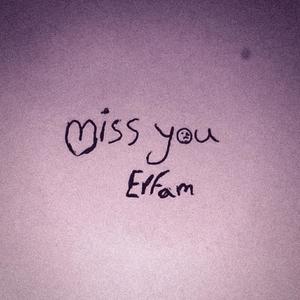 miss you
Erfam